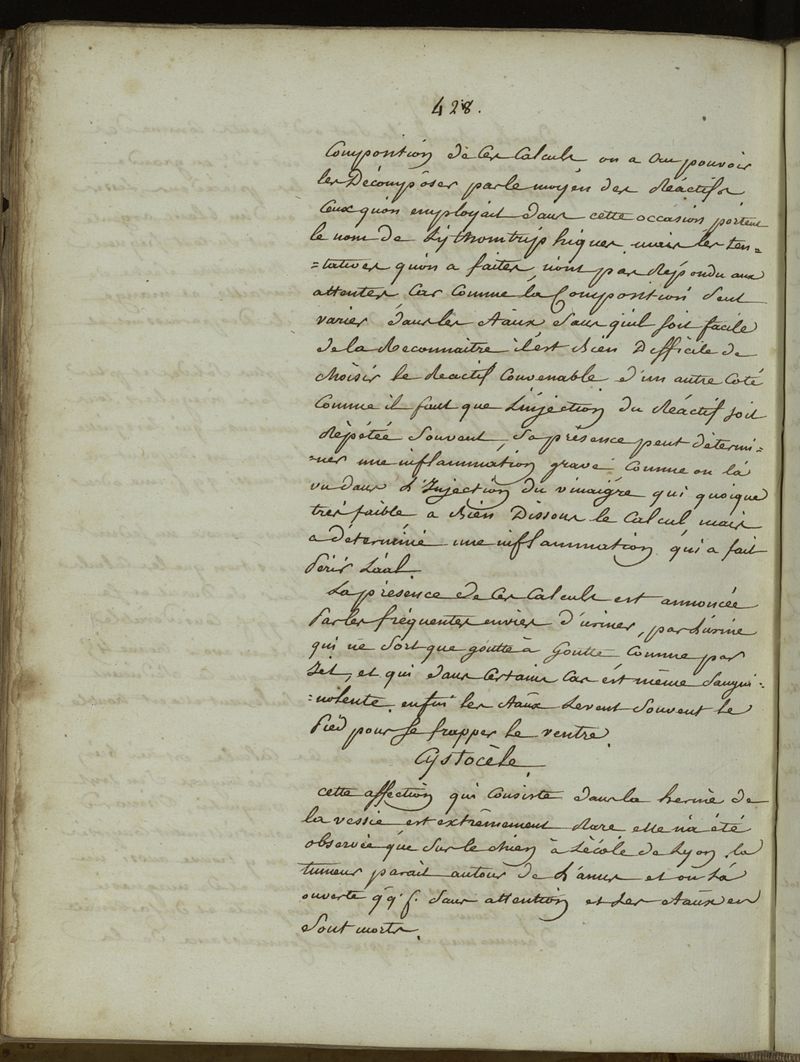 428.
Composition de Ces Calculs on a Cru pouvoir
les Décomposer par le moyen des Réactifs
Ceux qu'on employait dans cette occasion portent
le nom de Lythomtriphiques mais les ten=
=tatives qu'on a faites, n'ont pas Répondu aux
attentes Car Comme la Composition peut
varier dans les aaux sans qu'il soit facile
de la Reconnaitre il est Bien Difficile de
choisir le Reactif Convenable d'un autre Coté
Comme il faut que L'injection du Réactif soit
Répétée Souvent, Sa présence peut détermi=
=ner une inflammation grave Comme on l'a
vu dans L'Injection du vinaigre qui quoique
très faible a Bien Dissous le Calcul mais
a déterminé une inflammation qui a fait
Périr L'aal.
La présence de Ces Calculs est annoncée
Par les fréquentes envies d'uriner, par L'urine
qui ne Sort que goutte à Goutte Comme par
Jet, et qui dans Certains Cas est même Sangui=
=nolente enfin les aaux Levent Souvent le
Pied pour Se frapper le ventre
Cystocèle
cette affection qui Consiste dans la hernie de
la vessie est extrêmement Rare elle n'a été
observée que Sur le chien à L'école de Lyon la
tumeur parait autour de L'anus et on L'a
ouverte qq. f. Sans attention et Les aaux en
Sont morts.